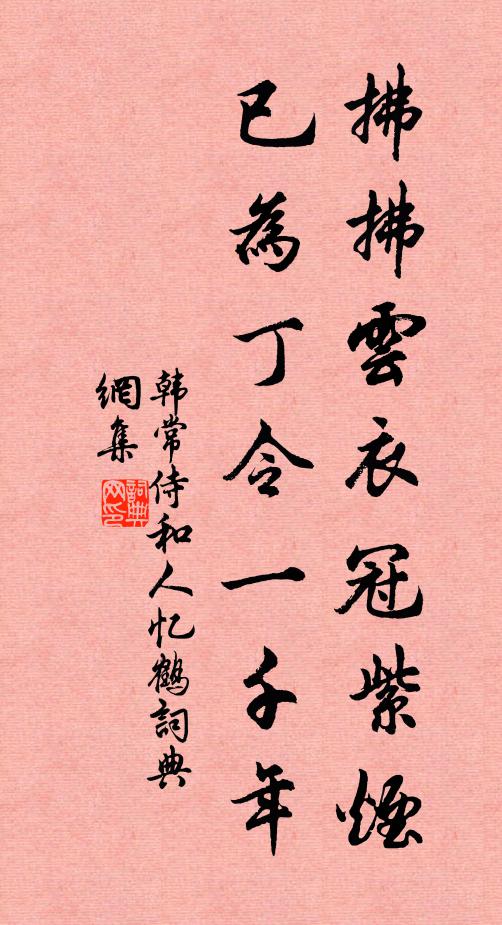 拂拂雲衣冠紫煙
已為丁令一千年
韩常侍和人忆鶴詞典
網集
詞典網印